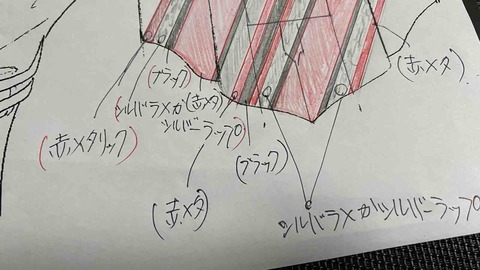 (ブラック)
(赤メタ)
(シルバラメorシルバーラップ)
(赤メタ)
(赤メタリック)
(ブラック)
(赤メタ)
シルバラメorシルバーラップ